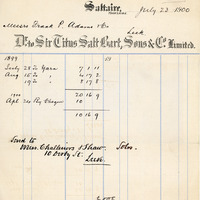 Saltaire,
July 23 1900
Messrs Frank P. Adams & Co
Leek
Dr. to Sir Titus Salt Bart., Sons & Co. Limited.
1899
July 28 To Yarn 7 1 11
Aug 15 " " 6 17 8
" 19 " " 6 17 2
20 16 9
1900
Apl 20 By Cheque 10
10 16 9
Send to
Messrs Challinors & Shaw Solrs.
10 Derby St.
Leek